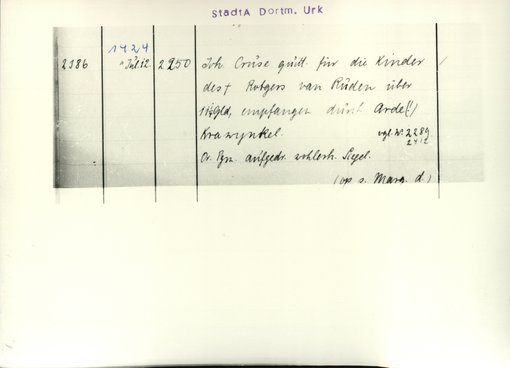 StadtA Dortm. Urk
1424
2386 " Juli 12. 2250 Joh Crüse quitt. für die Kinder
des † Rotgers van Rüden über
Gld, empfangen durch Arde(!)
Krawynkel. vgl. Nr. 2289
2412
Or. Pgm. aufgedr. schlech. Siegel.
(up s. Marg. d.)